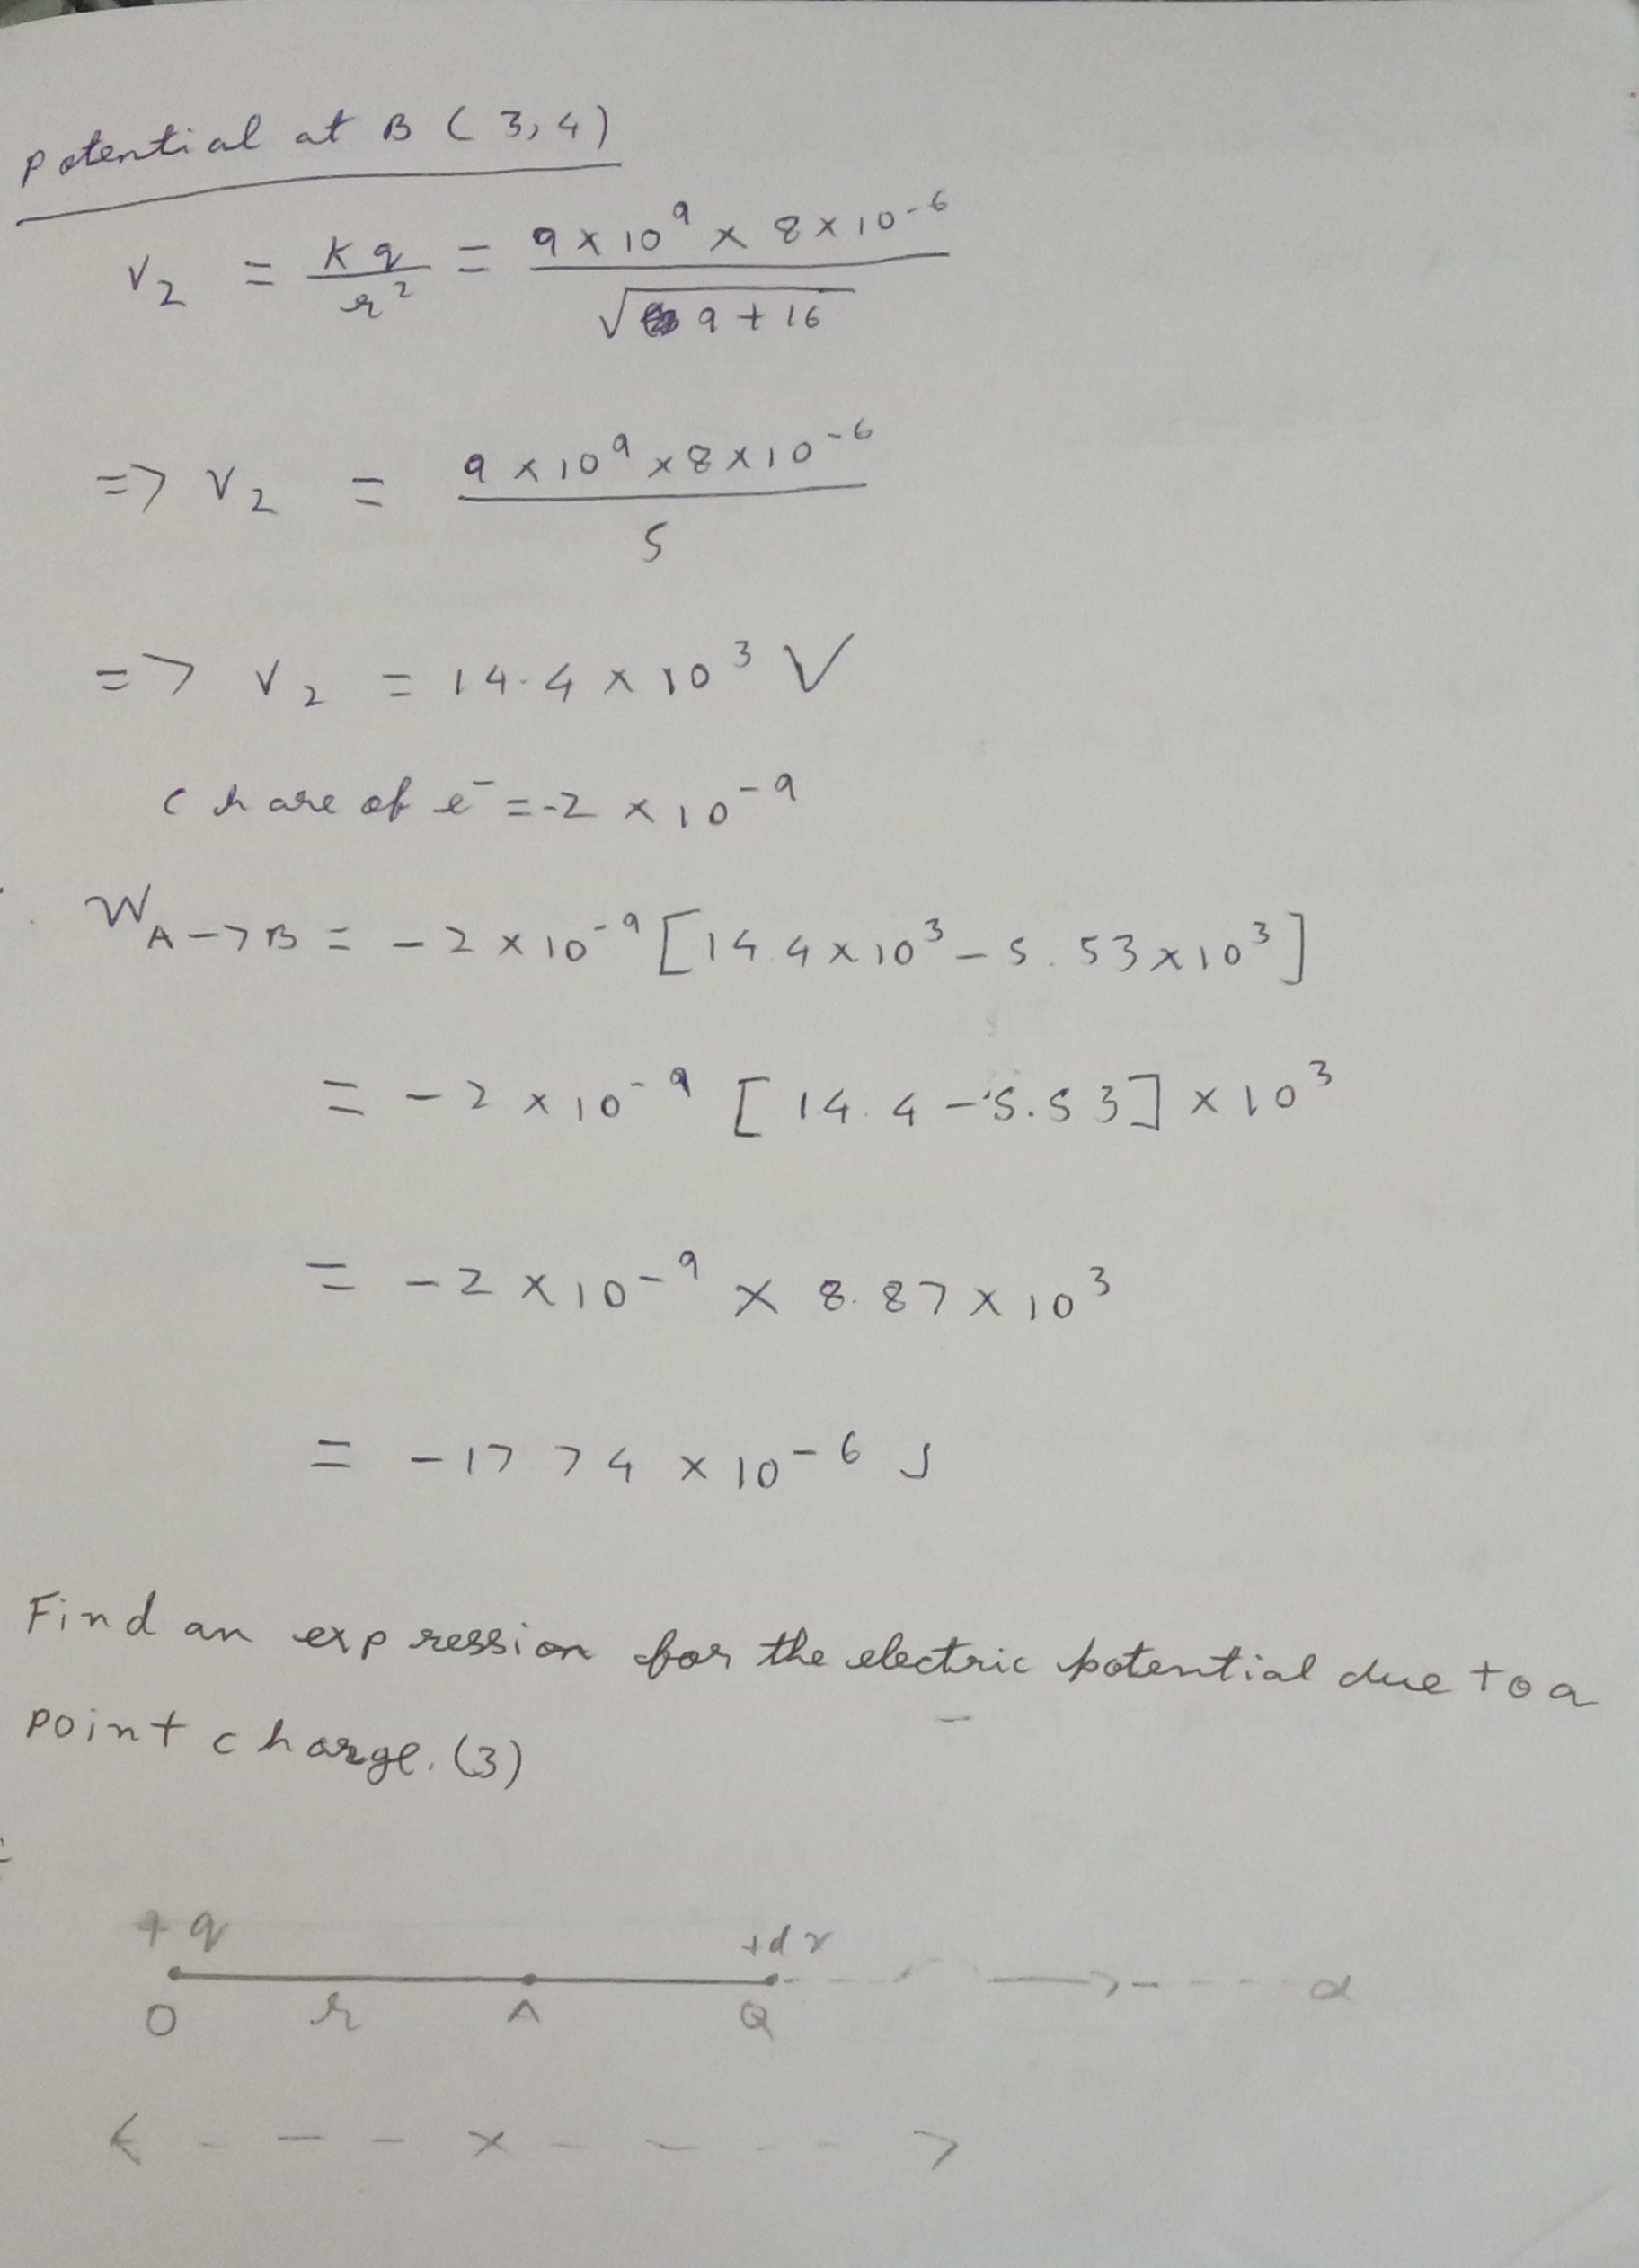 potential at B (3,4)
V₂ = Kq/r² = 9×10⁹ × 8×10⁻⁶/√9+16
=> V₂ = 9×10⁹×8×10⁻⁶/5
=> V₂ = 14.4×10³ V
chare of e⁻=-2×10⁻⁹
W A->B = -2×10⁻⁹[14.4×10³-5.53×10³]
= -2×10⁻⁹ [14.4-5.53]×10³
= -2×10⁻⁹ × 8.87×10³
= -17 74 ×10⁻⁶ J
Find an expression for the electric potential due to a
point charge. (3)
+q +dx
O r A Q α
< - - - x - - - - >